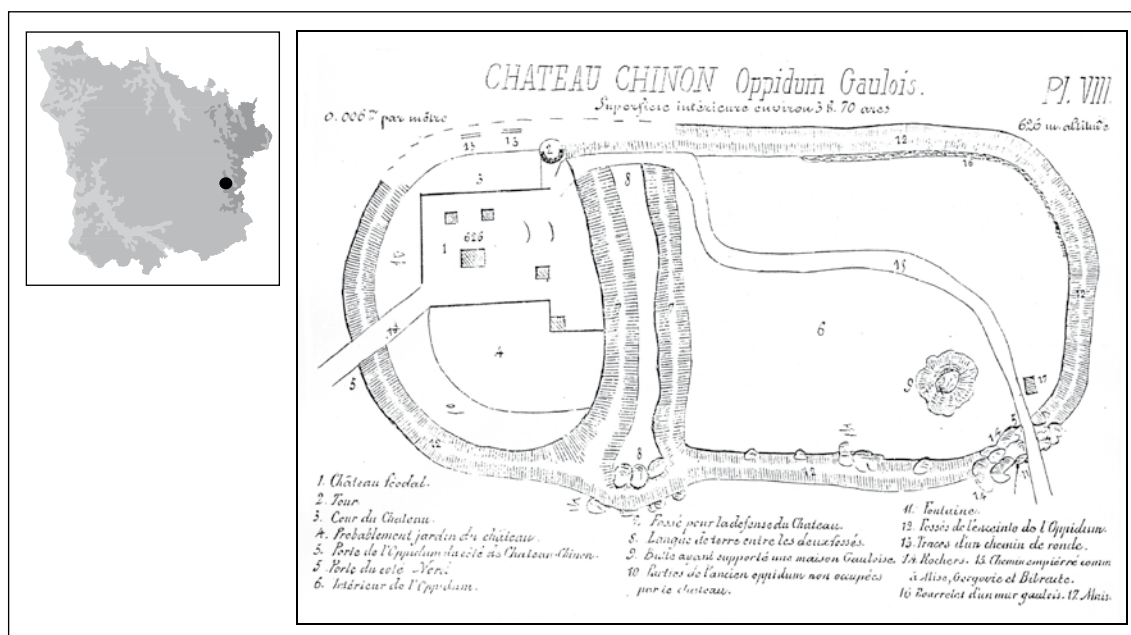 CHATEAU CHINON Oppidum Gaulois.
Pl. VIII
Superficie intérieure environ 38.70 ares
0.006mm par mètre
626 m. altitude
13
13
2
12
16
3
8
1
626
10
15
12
7
7
6
4
14
5
9
17
5
10
12
8
14
14
12
14
14
14
1. Château féodal.
2. Tour
3. Cour du Chateau.
4. Probablement jardin du château.
5. Porte de l'Oppidum du côté de Chateau-Chinon.
5 Porte du côté Nord
6. Intérieur de l'Oppidum.
7. Fossé pour la défense du Chateau.
8 Langue de terre entre les deux fossés.
9. Butte ayant supporté une maison Gauloise.
10 Parties de l'ancien oppidum non occupées
par le chateau.
11. Fontaine.
12 Fossés de l'enceinte de l'Oppidum.
13. Traces d'un chemin de ronde.
14. Rochers. 15. Chemin empierré comm
à Alise, Gergovie et Bibracte.
16 Bourrelet d'un mur gaulois. 17. Mais.